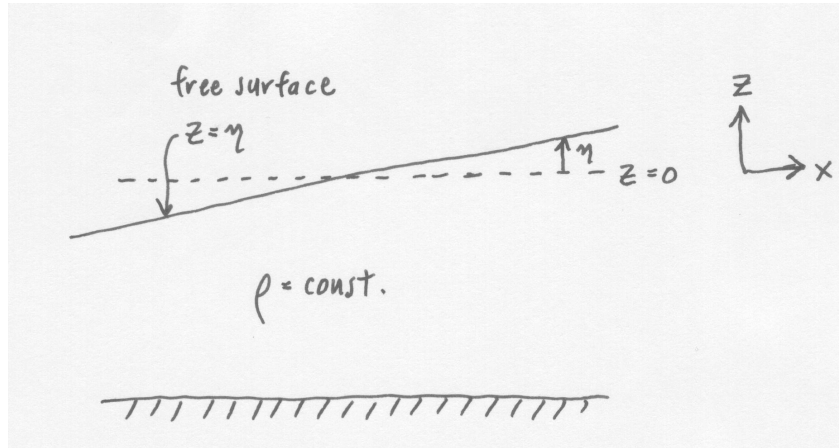 free surface
z=η
η
z=0
ρ = const.
z
x